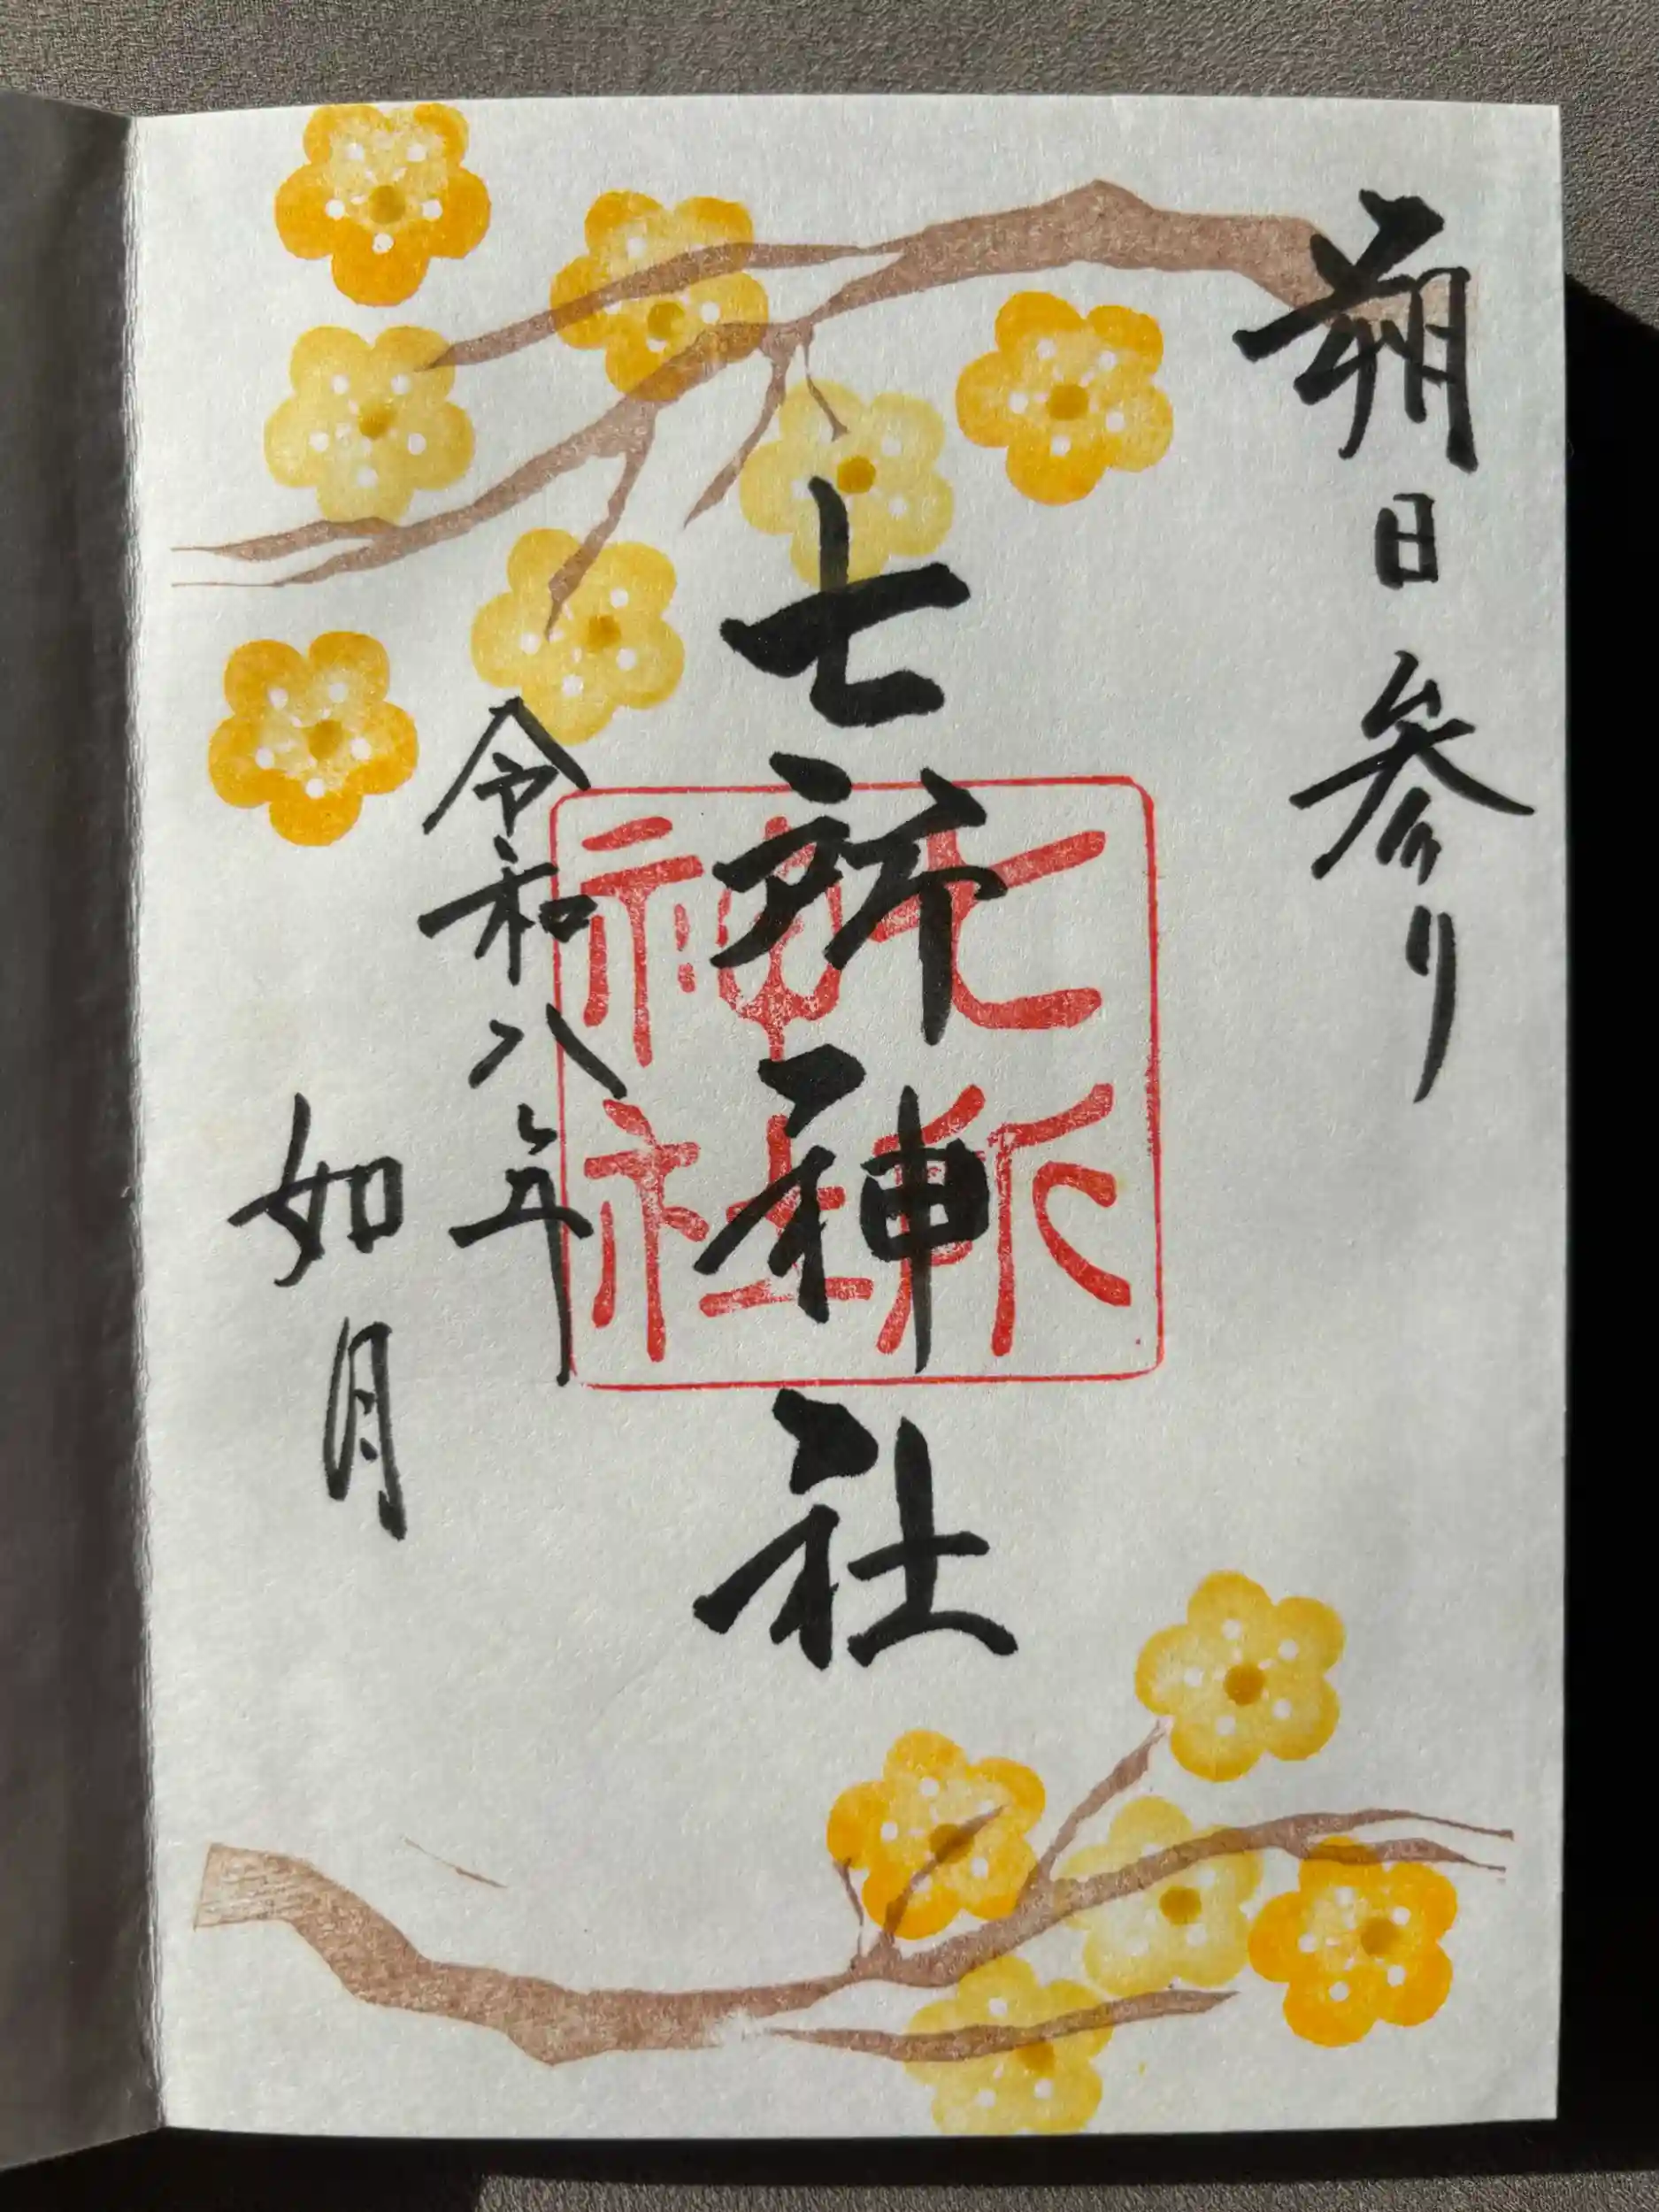 朔日参り
七所神社
七所神社
令和八年
如月